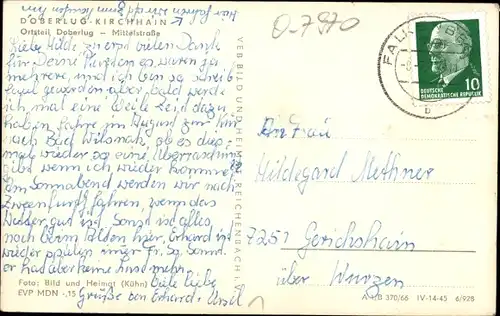 O-7970
DOBERLUG-KIRCHHAIN
Ortsteil Doberlug – Mittelstraße
Liebe Hilde zuerst vielen Dank
für Deine Karten es waren ja
mehrere, und ich bin so schreib
faul geworden aber bald werde
ich mal eine Weile Zeit dazu
haben fahre im August zur Kur
nach Bad Wilsnack, ob es dies
mal wieder so eine Überraschung
gibt wenn ich wieder komme?
Am Sonnabend werden wir nach
fahren, wenn das
Wetter gut ist. Sonst ist alles
noch beim Alten hier, Erhard ist
wieder spielen Fr. Sa. Sonnt.
er hat aber keine Lust mehr.
Viele liebe
Grüße von Erhard + Ursel
Foto: Bild und Heimat (Kühn)
EVP MDN -,15
VEB BILD UND HEIMAT REICHENBACH I. V.
FALKENB
DEUTSCHE
DEMOKRATISCHE REPUBLIK
10
An Frau
Hildegard Methner
7251 Gerichshain
über Wurzen
A 1/B 370/66 IV-14-45 6/928